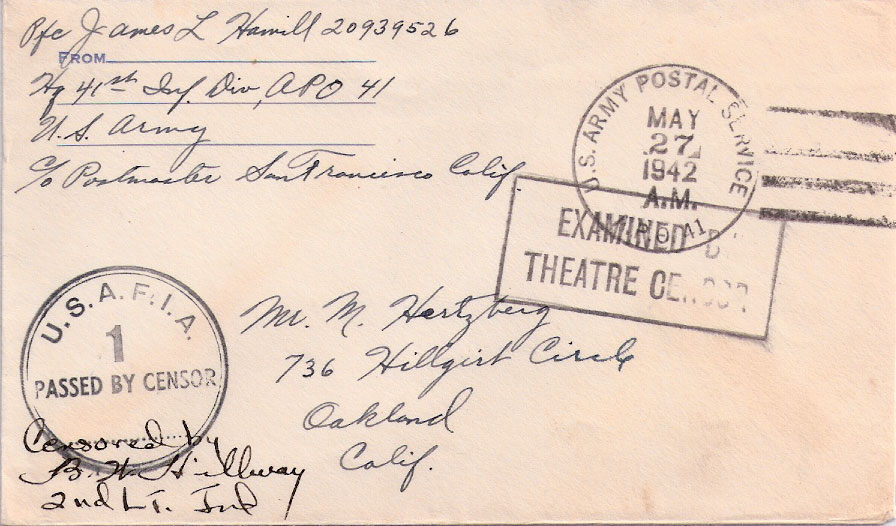 Pfc James L Hamill 20939526
FROM
Hq 41st Inf. Div, APO 41
U.S. Army
c/o Postmaster San Francisco Calif.
U.S. ARMY POSTAL SERVICE
MAY
27
1942
A.M.
A.P.O. 41
EXAMINED BY
THEATRE CENSOR
U.S.A.F.I.A.
1
PASSED BY CENSOR
Mr. M. Hertzberg
736 Hillgirt Circle
Oakland
Calif.
Censored by
2nd LT. Inf